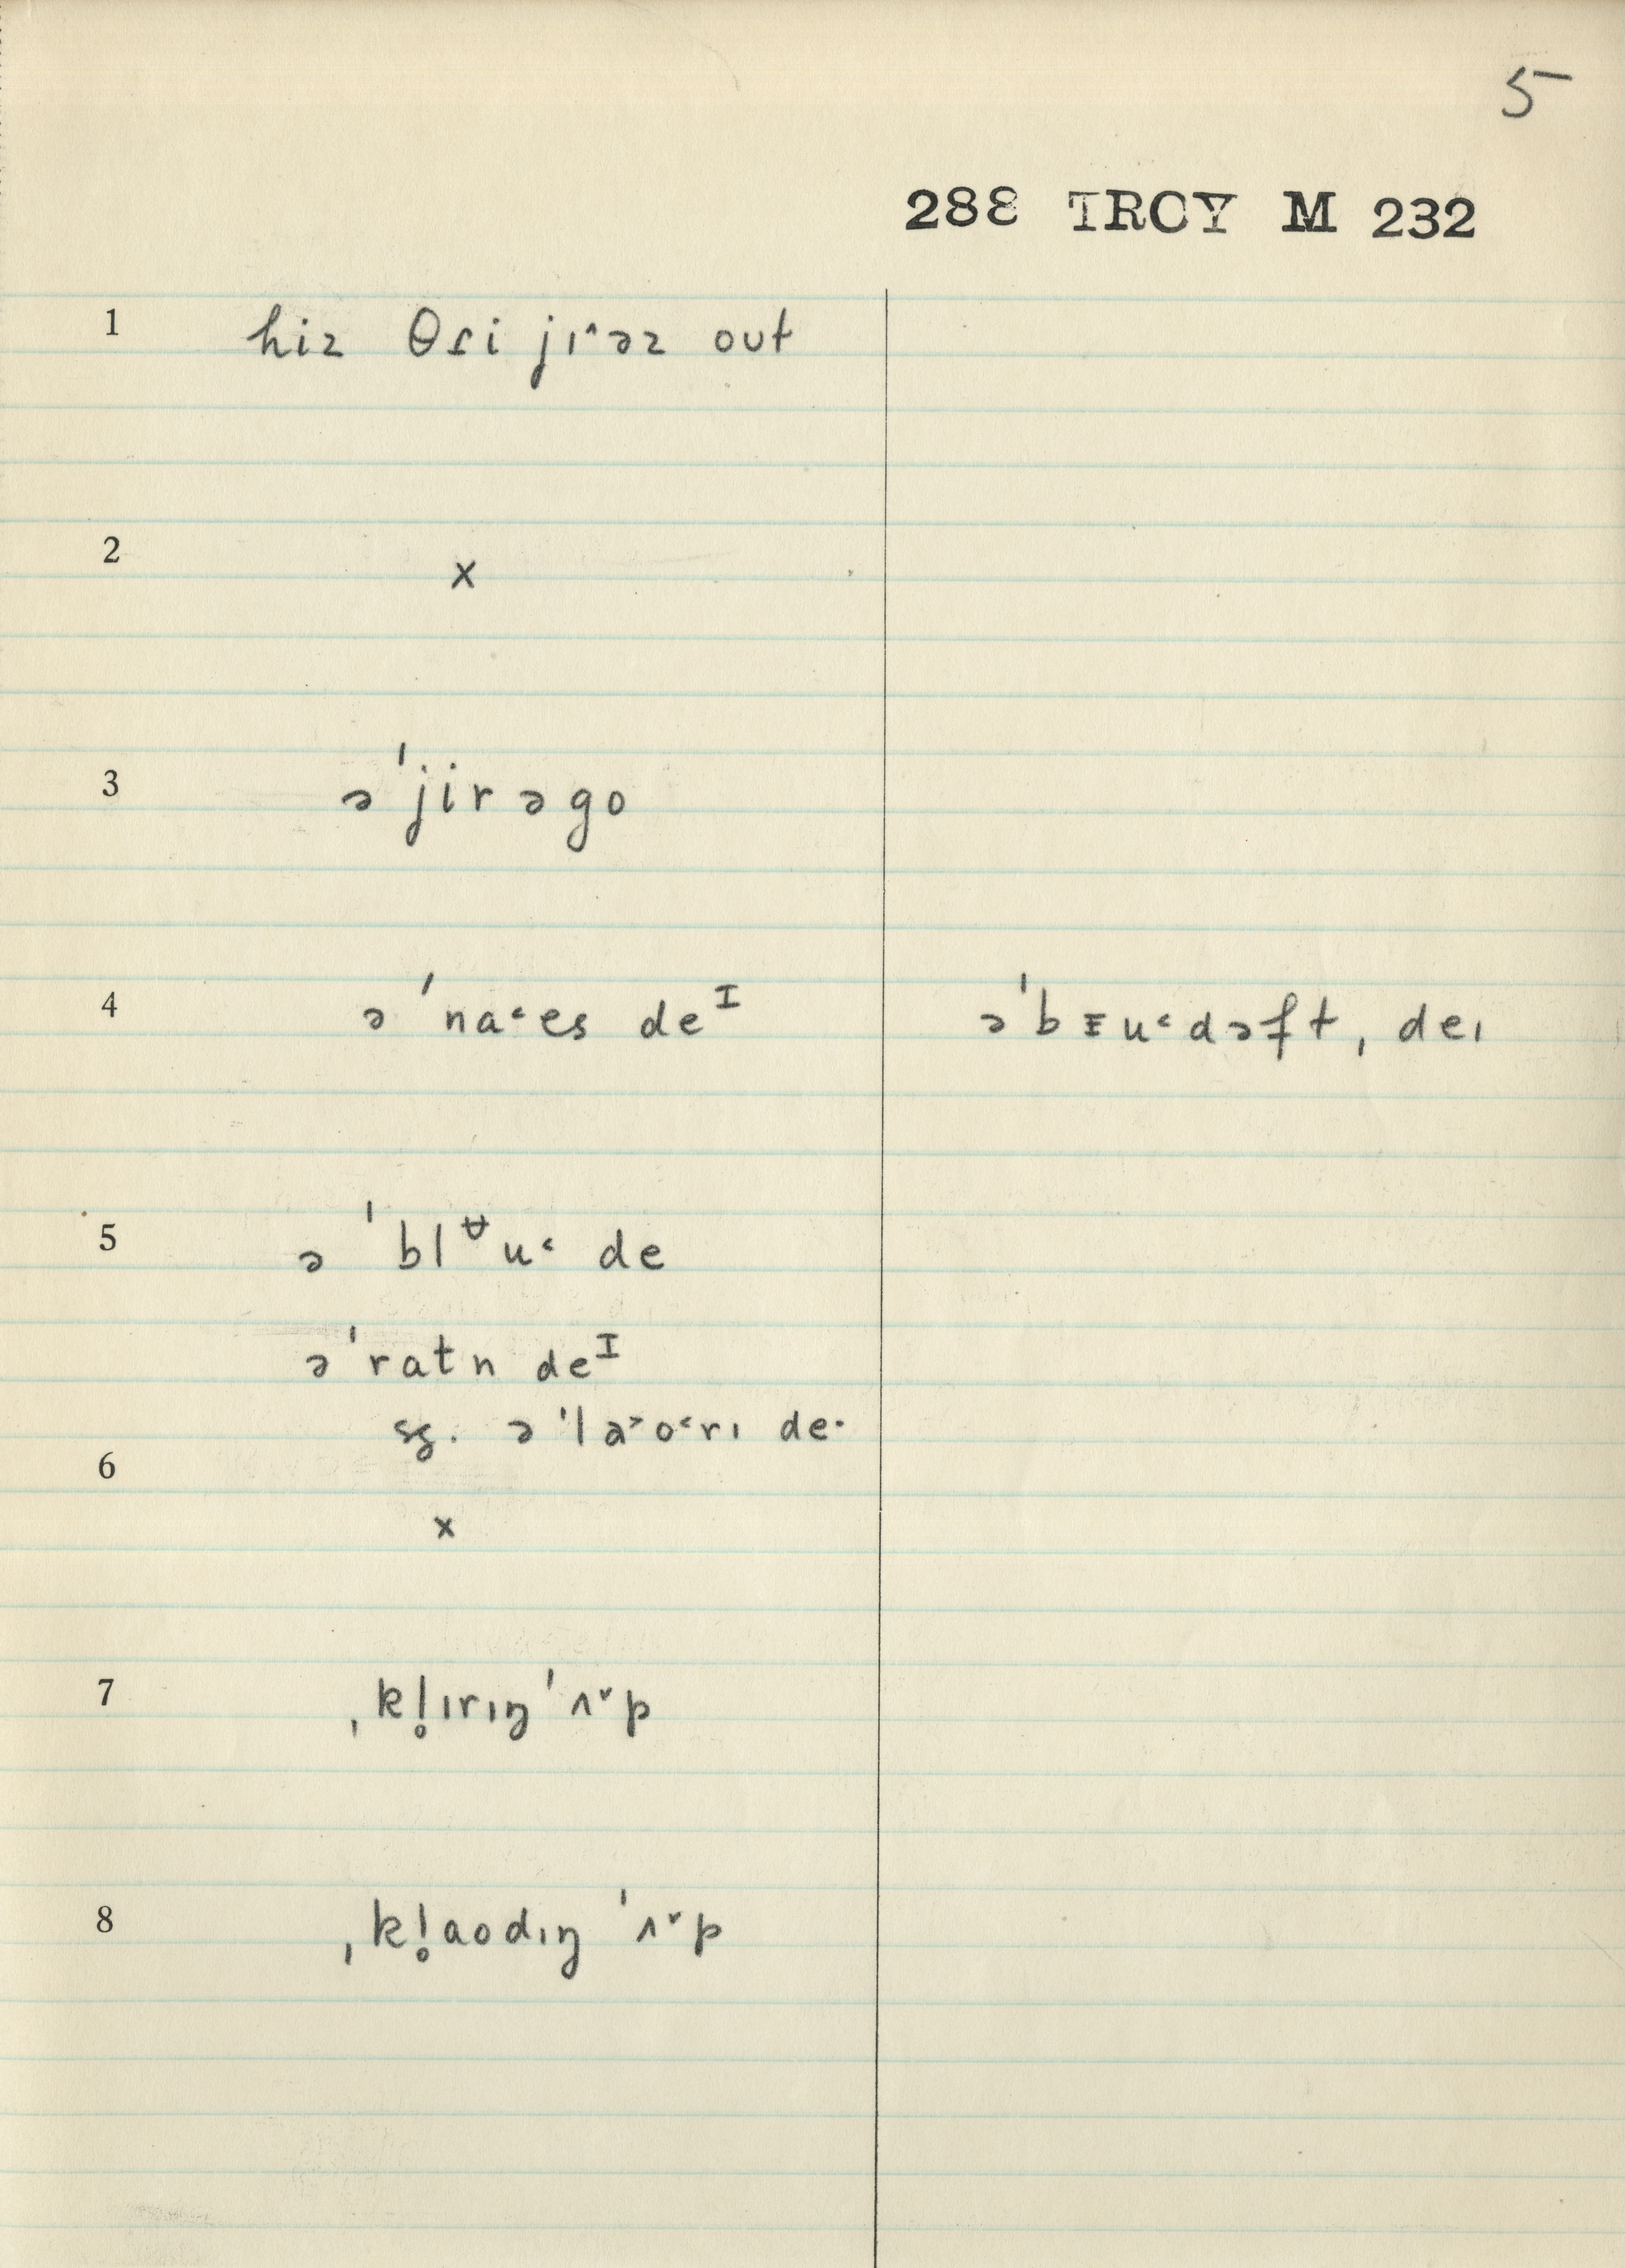 5
288 TROY M 232
1 hiz θɾi jɪ˄əz out
2 x
3 əˈjirəgo
4 əˈna˂es deᴵ əˈbɪu˂dəft, deɪ
5 əˈblᶶu˂ de
əˈratn deᴵ
sg. əˈla˃o˂rɪ de·
6
x
7 ˌkl̥ɪrɪŋˈʌ˅p
8 ˌkl̥aodɪŋ ˈʌ˅p